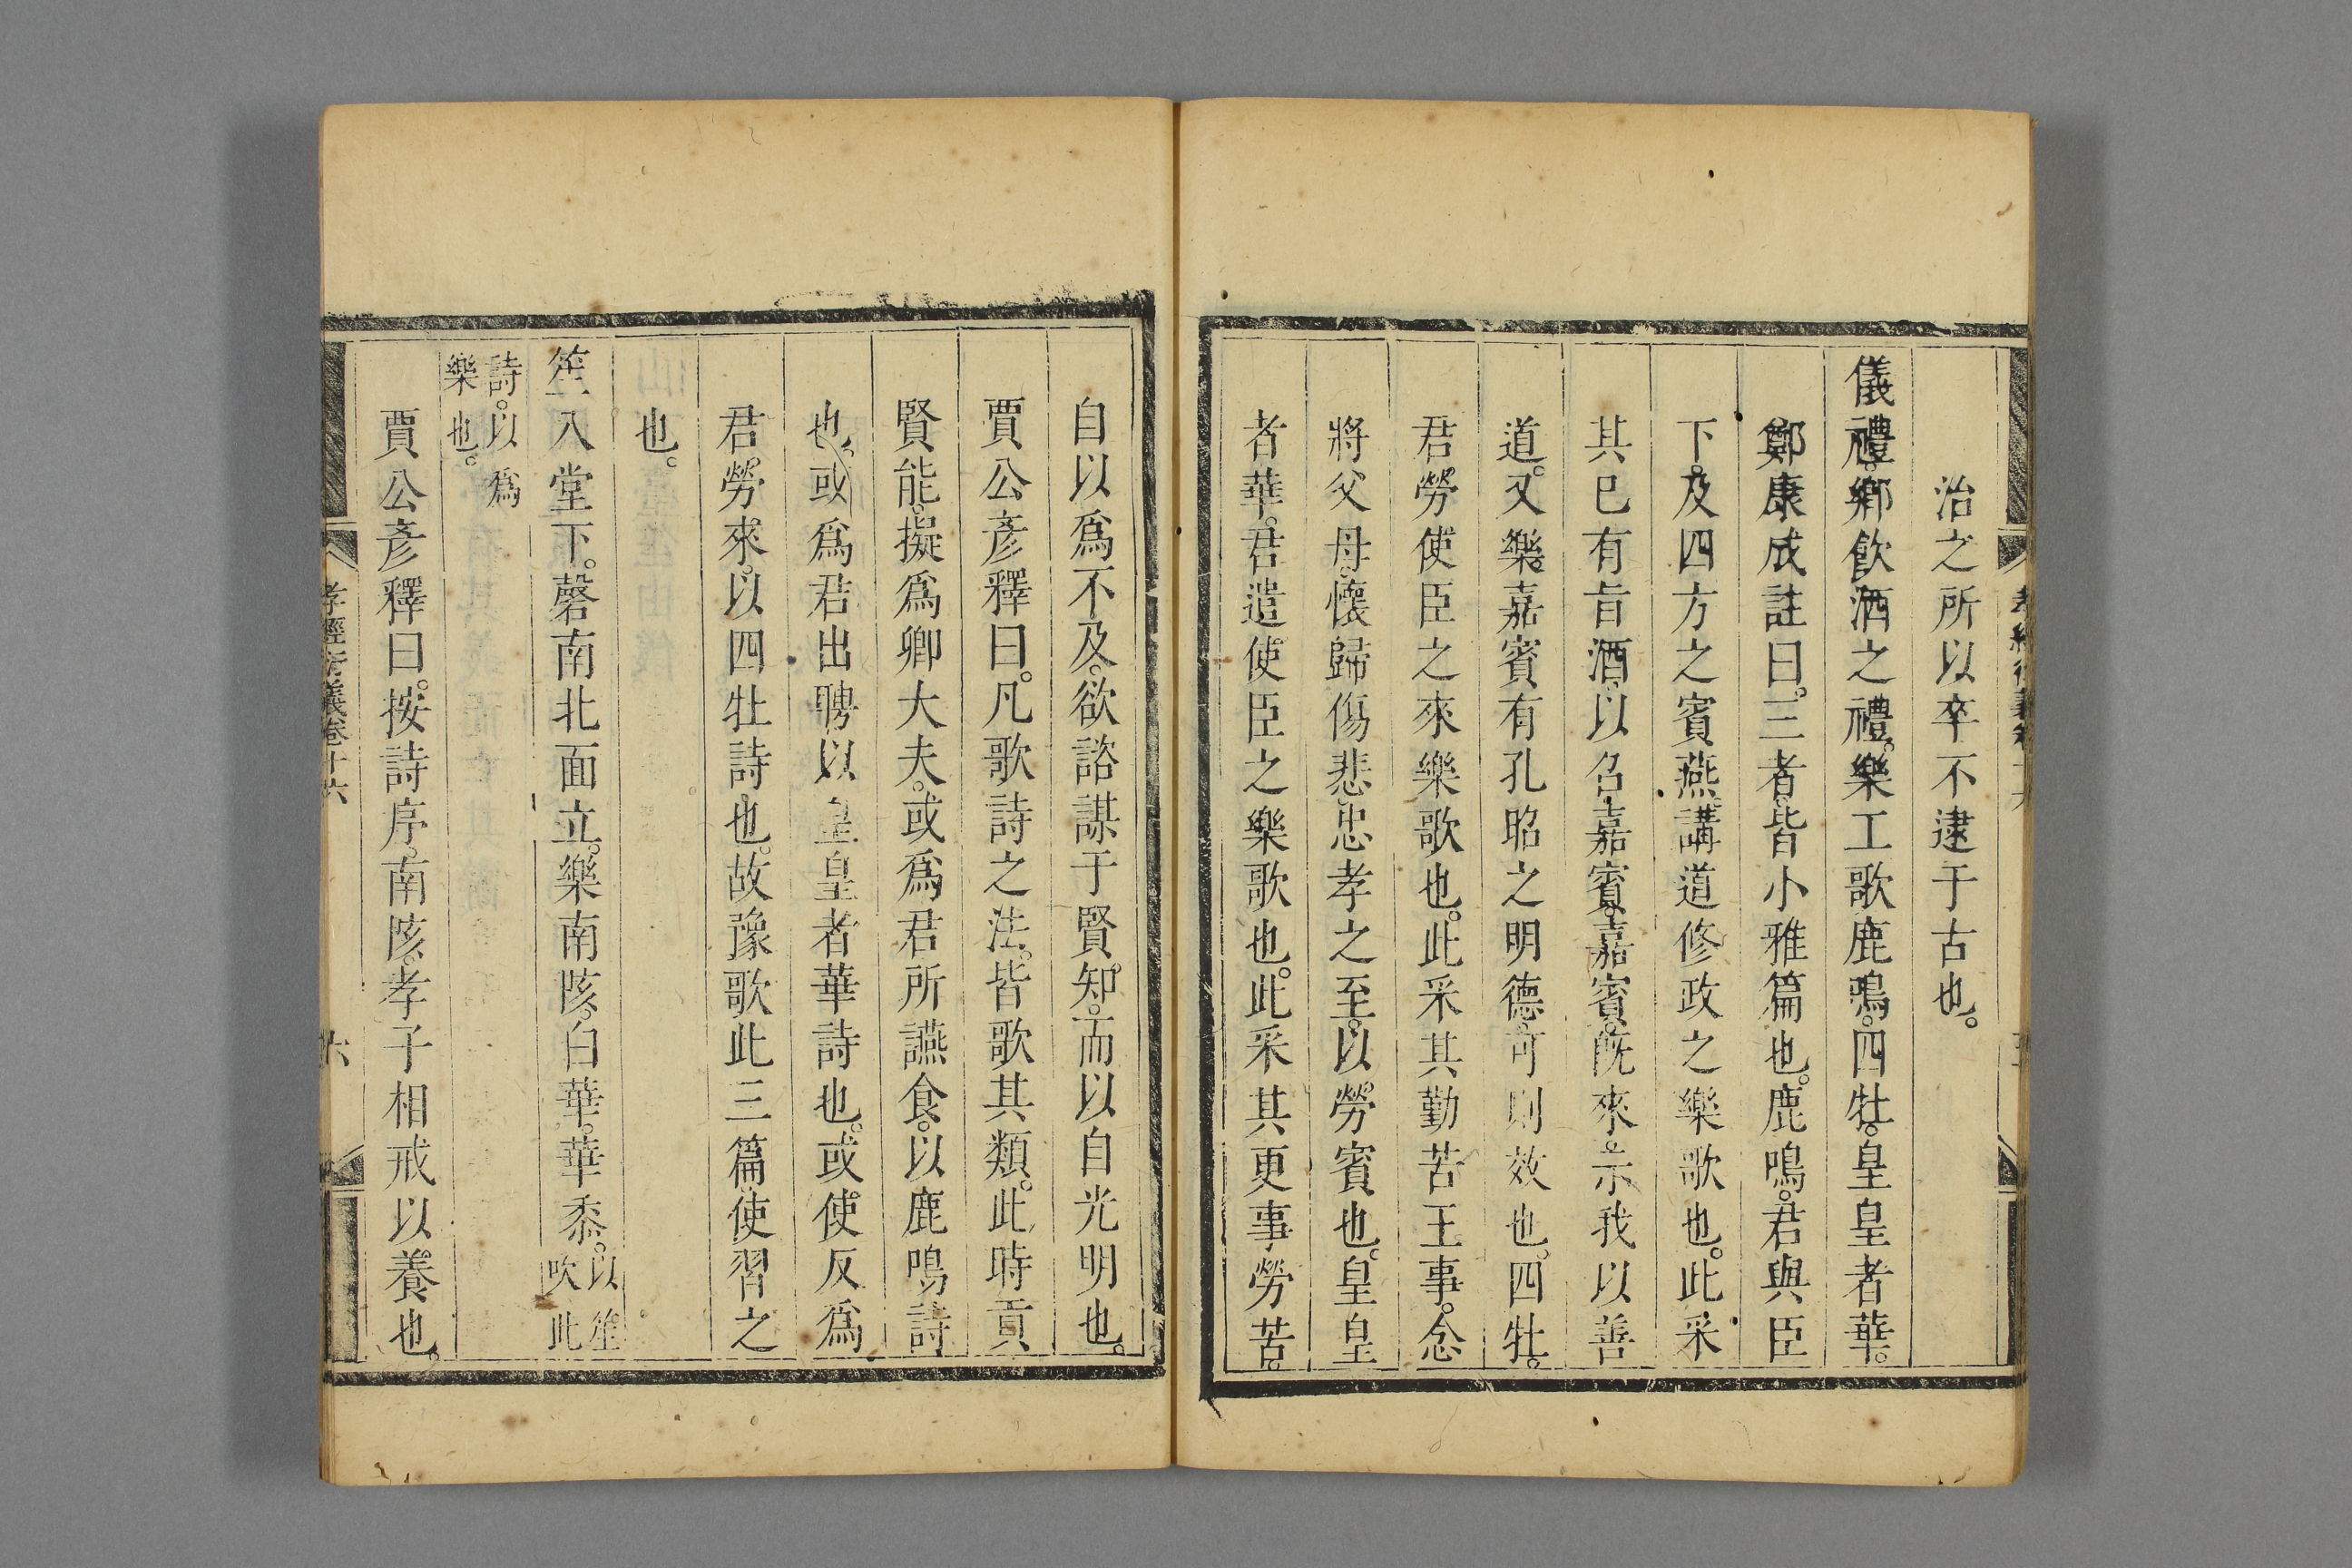 治之所以卒不逮于古也。
儀禮。鄉飲酒之禮。樂工歌鹿鳴。四牡。皇皇者華。
鄭康成註曰。三者。皆小雅篇也。鹿鳴。君與臣
下。及四方之賓燕。講道修政之樂歌也。此采
其已有旨酒。以召嘉賓。嘉賓。旣來。示我以善
道。又樂。嘉賓有孔昭之明德。可則效也。四牡。
君勞使臣之來樂歌也。此采其勤苦王事。念
將父母。懷歸傷悲。忠孝之至。以勞賓也。皇皇
者華。君遣使臣之樂歌也。此采其更事勞苦。
自以爲不及。欲諮謀于賢。知。而以自光明也。
賈公彥釋曰。凡歌詩之法。皆歌其類。此時貢
賢能。擬爲卿大夫。或爲君所讌食。以鹿鳴詩
也。或爲君出聘以皇皇者華詩也。或使反爲
君。勞來。以四牡詩也。故豫歌此三篇使習之
也。
笙入堂下。磬南北面立。樂南陔。白華。華黍。以笙
吹此
詩。以爲
樂也。
賈公彥釋曰。按詩序。南陔。孝子相戒以養也。
孝經衍義卷十六
六